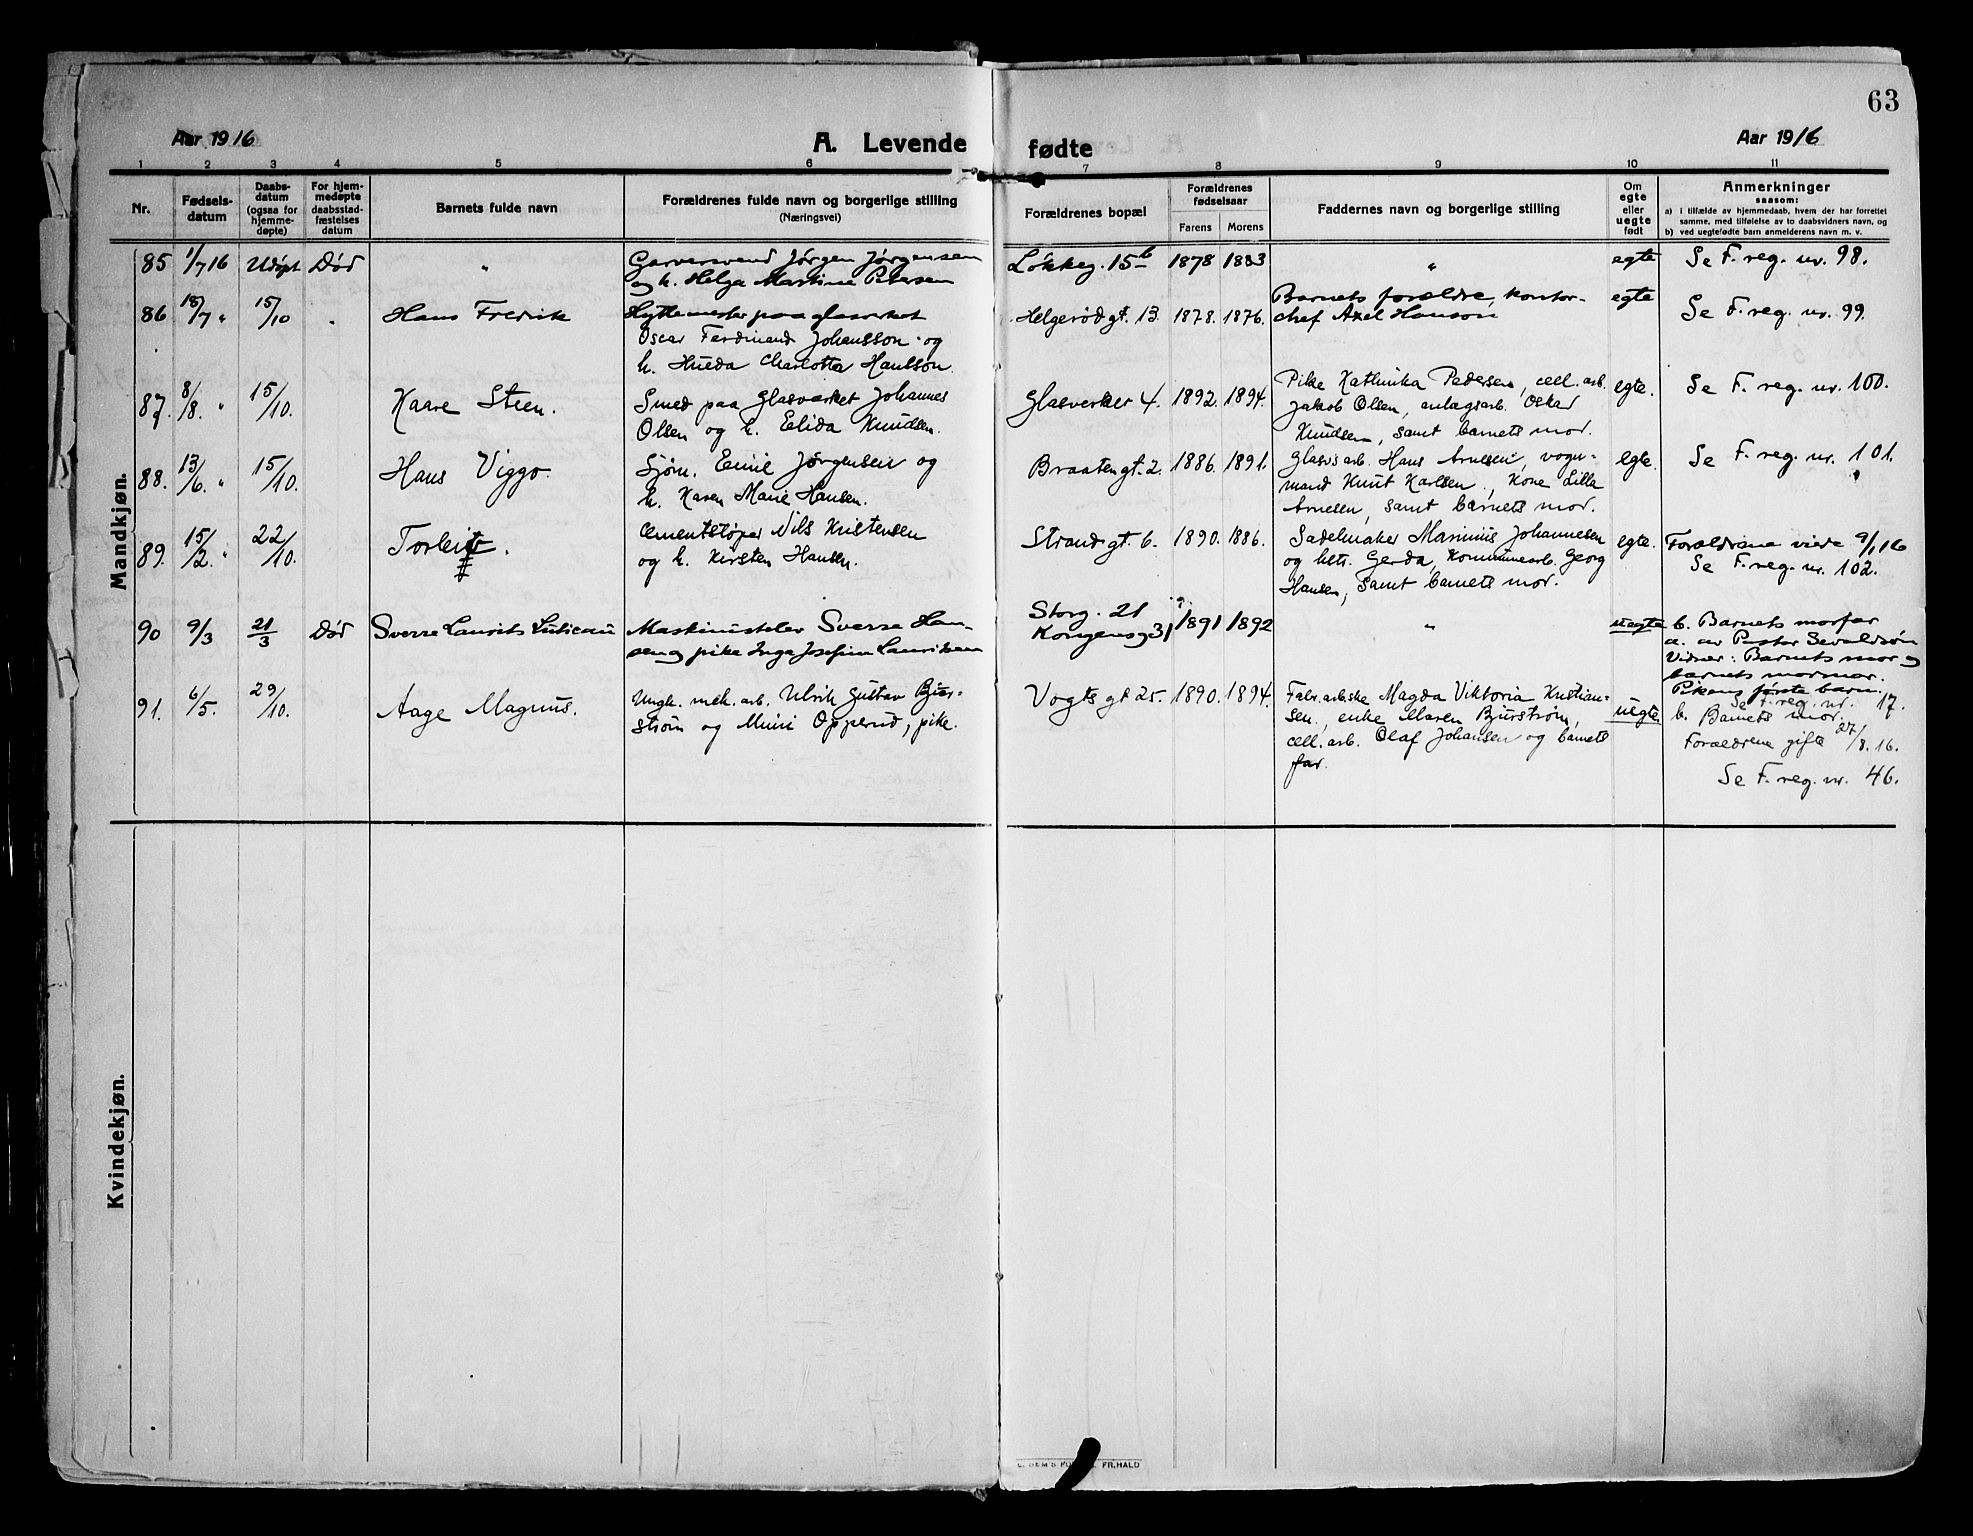 63
Aar 1916
A. Levende
fødte
Aar 1916
1 2 3 4 5 6 7 8 9 10 11
Nr.
Fødsels-
datum
Daabs-
datum
(ogsaa for
hjemme-
døpte)
For hjem-
medøpte
daabsstad-
fæstelses
datum
Barnets fulde navn
Forældrenes fulde navn og borgerlige stilling
(Næringsvei)
Forældrenes bopæl
Forældrenes
fødselsaar
Farens Morens
Faddernes navn og borgerlige stilling
Om
egte
eller
uegte
født
Anmerkninger
saasom:
a) i tilfælde av hjemmedaab, hvem der har forrettet
samme, med tilføielse av to daabsvidners navn, og
b) ved uegtefødte barn anmelderens navn m. v.
Mandkjøn.
85 1/7 16 Udøpt Død "
Garversvend Jørgen Jørgensen
og h. Helga Martine Petersen
Løkkeg. 15 b 1878 1883 " egte Se F. reg. nr. 98.
86 18/7 " 15/10 " Hans Fredrik
Hyttemester paa glasverket
Oscar Ferdinand Johansson og
h. Hulda Charlotta Hansson.
Helgerødgt. 13 1878. 1876.
Barnets forældre, kontor-
chef Axel Hanson
egte Se F. reg. nr. 99.
87. 8/8. " 15/10. Kaare Steen.
Smed paa Glasværket Johannes
Olsen og h. Elida Knudsen.
Glasverket 4. 1892. 1894.
Pike Kathinka Pedersen, cell. arb.
Jakob Olsen, anlægsarb. Oskar
Knudsen, samt barnets mor.
egte. Se F. reg. nr. 100.
88. 13/6. " 15/10. Hans Viggo.
Sjøm. Emil Jørgensen og
h. Karen Marie Hansen.
Braatengt. 2. 1886. 1891.
Glasvs arb. Hans Arnesen, vogn-
mand Knut Karlsen, Kone Lilla
Arnesen, samt barnets mor.
egte. Se F. reg. nr. 101.
89. 15/2. " 22/10. Torleif.
Cementstøper Nils Kristensen
og h. Kirsten Hansen.
Strandgt. 6. 1890. 1886.
Sadelmaker Marinius Johannesen
og htr. Gerda, Kommunearb. Georg
Hansen, samt barnets mor.
egte. Forældrene viede 9/1 16
Se F. reg. nr. 102.
90 9/3 21/3 Død Sverre Laurits
Maskinistelev Sverre Han-
sen og pike Inga Josefine Lauritsen
Storg. 21
Kongensg 31 1891 1892 " uegte
b. Barnets morfar
a. av Pastor Sevaldsøn
Vidner: Barnets mor og
barnets mormor.
Pikens første barn.
Se F. reg. nr. 17.
91. 6/5. 29/10. Aage Magnus.
Ungk. mek. arb. Ulrik Gustav Bjur-
strøm og Mimi Opperud, pike.
Vogtsgt 25. 1890. 1894.
Fabr. arbske Magda Viktoria Kristian-
sen, enke Maren Bjurstrøm,
cell. arb. Olaf Johansen og barnets
far.
uegte b. Barnets mor.
Forældrene gifte 27/8. 16.
Se F. reg. nr. 46.
Kvindekjøn.
FR. HALD